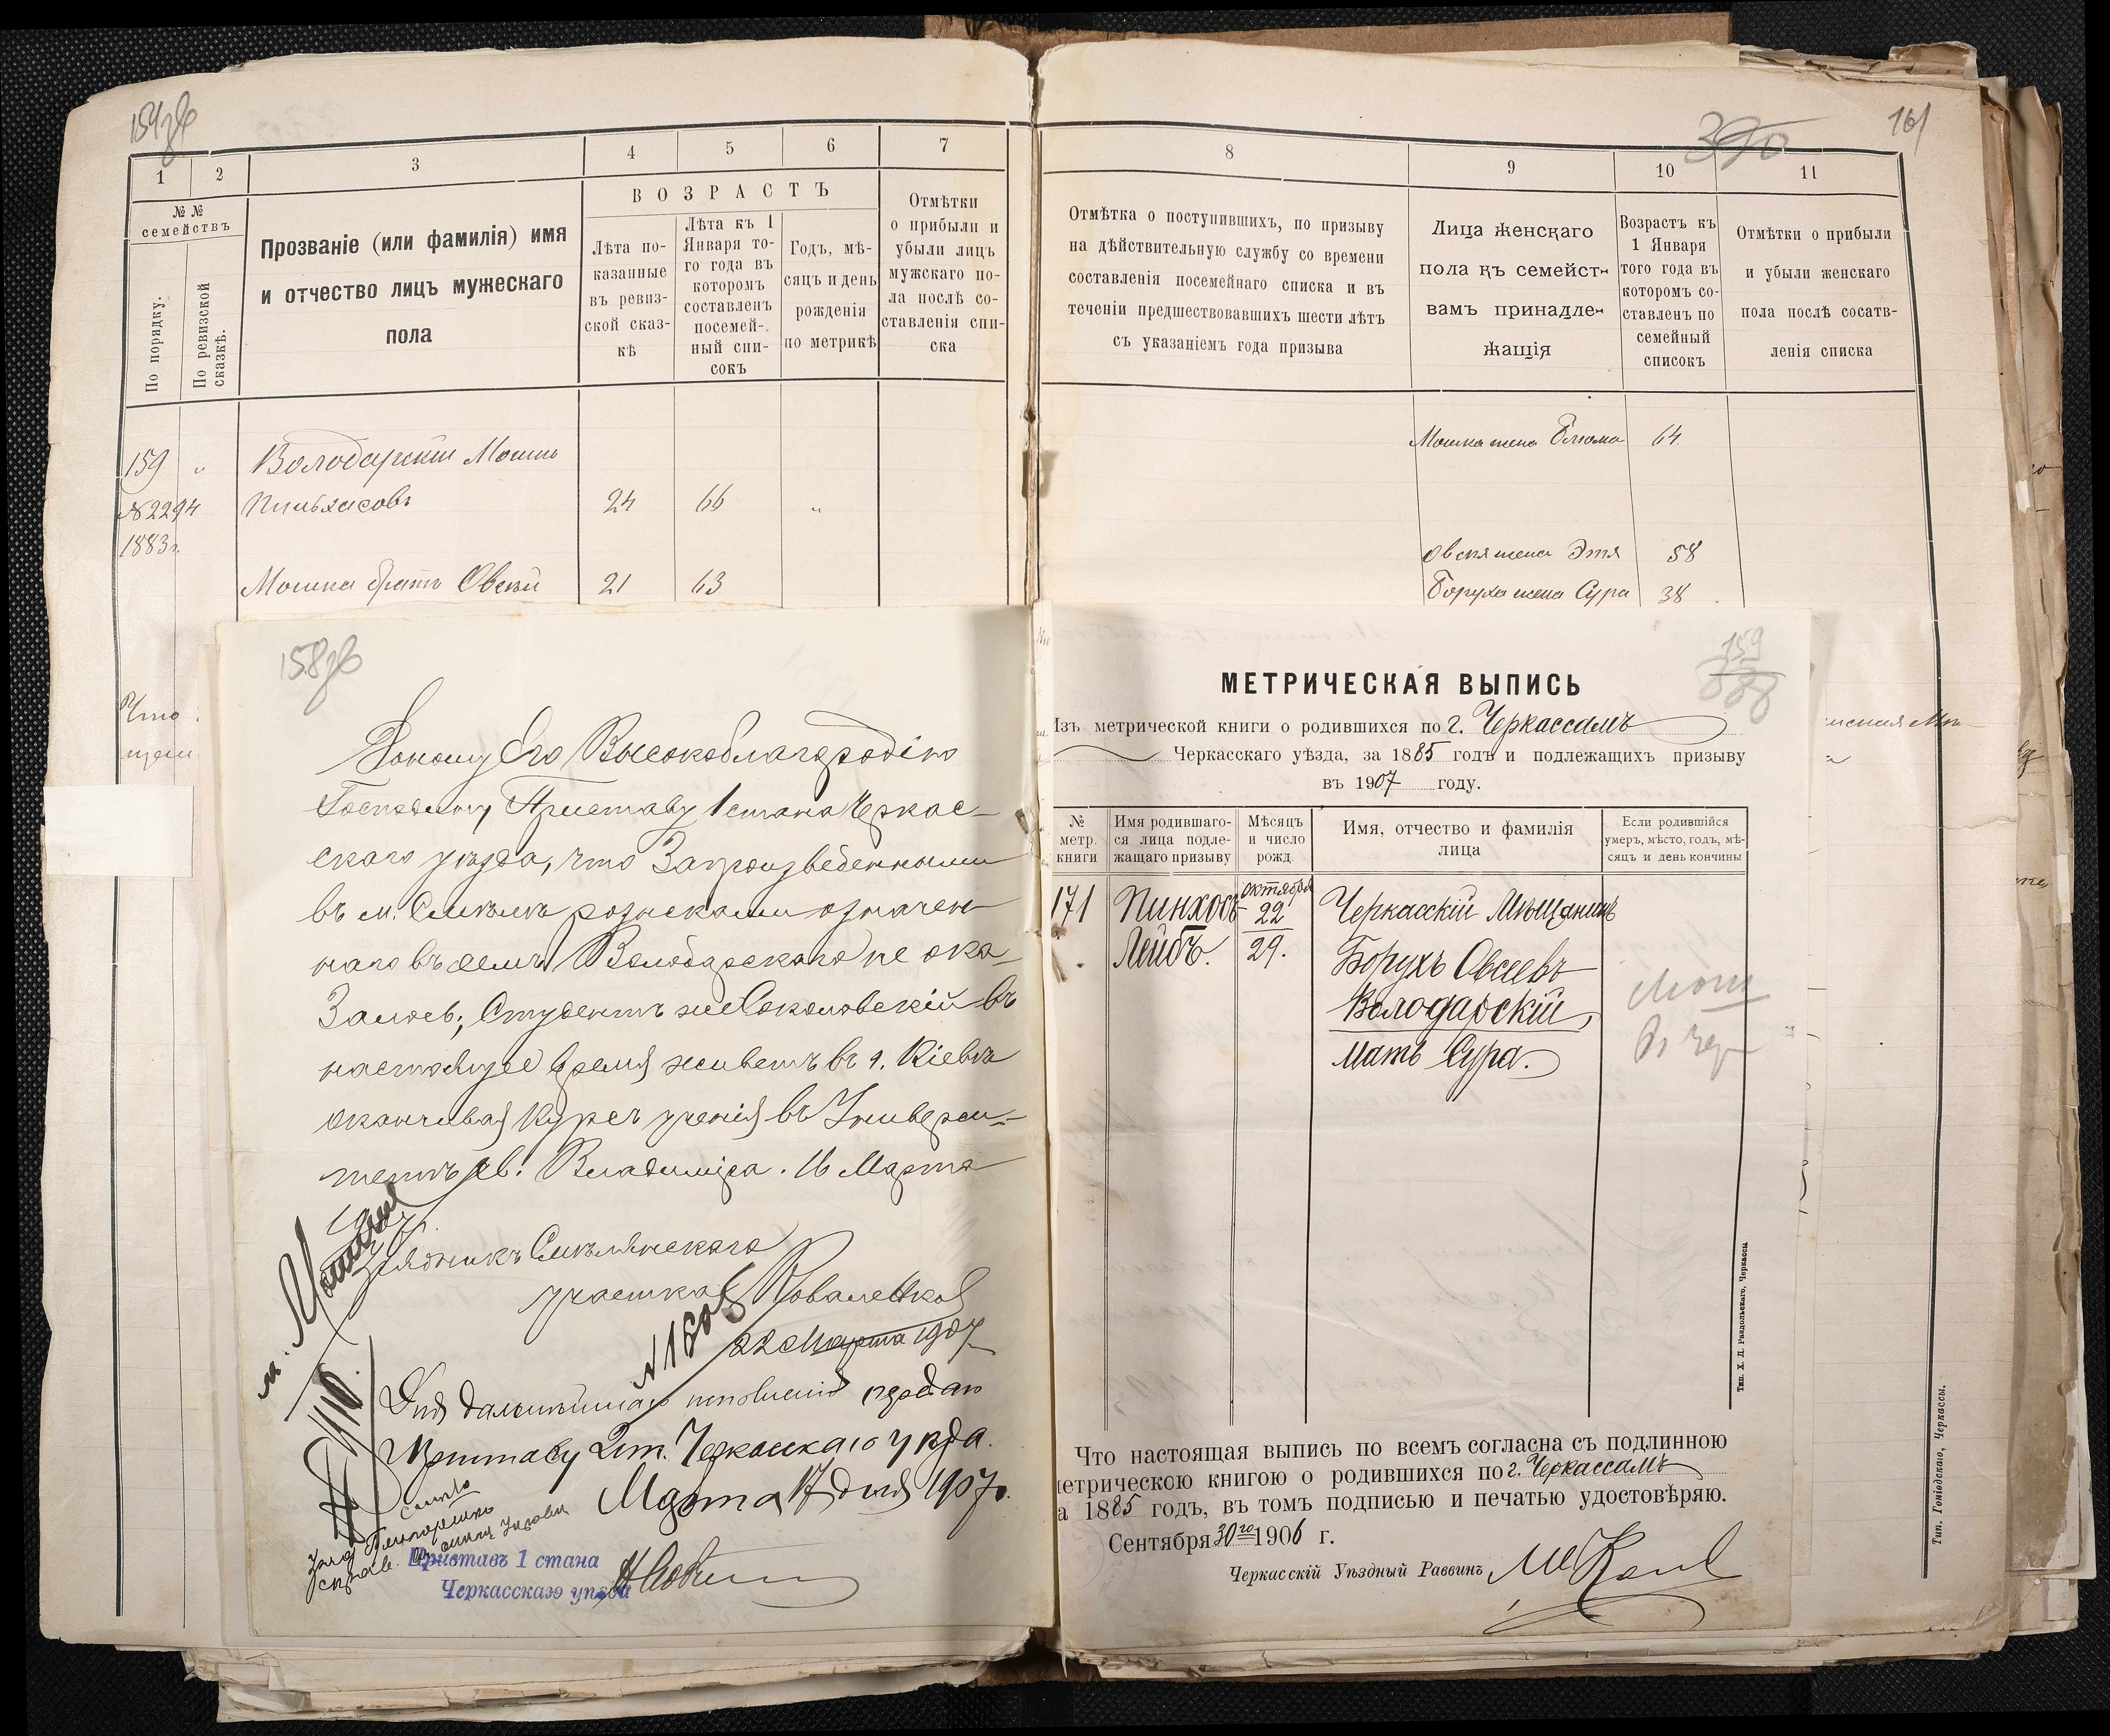 159зв
390
161
1
2
3
4
5
6
7
8
9
10
11
№ №
семействъ
По порядку.
По ревизской сказкѣ.
Прозваніе (или фамилія) имя
и отчество лицъ мужескаго
пола
ВОЗРАСТЪ
Лѣта по-
казанные
въ ревиз-
ской сказ-
кѣ
Лѣта къ 1
Января то-
го года въ
которомъ
составленъ
посемей-
ный спи-
сокъ
Годъ, мѣ-
сяцъ и день
рожденія
по метрикѣ
Отмѣтки
о прибыли и
убыли лицъ
мужскаго по-
ла послѣ со-
ставленія спи-
ска
Отмѣтка о поступившихъ, по призыву
на дѣйствительную службу со времени
составленія посемейнаго списка и въ
теченіи предшествовавшихъ шести лѣтъ
съ указаніемъ года призыва
Лица женскаго
пола къ семейст-
вамъ принадле-
жащія
Возрастъ къ
1 Января
того года въ
которомъ со-
ставленъ по
семейный
списокъ
Отмѣтки о прибыли
и убыли женскаго
пола послѣ сосатв-
ленія списка
159 " Володарскій Мошко
№2294 Пиньхасовъ 24 66 "
1883г.
Мошка братъ Овсей 21 63
Мошка жена Блюма 64
Овсея жена Этя 58
Боруха жена Сура 38
158зв
Его Высокоблагородію
Господину Приставу 1 стана Черкас-
скаго уѣзда, что Запроизведенными
въ м. Смѣлѣ розысками означен-
наго въ семъ Володарскаго не ока-
залось; Студентъ же Соколовскій въ
настоящее время живетъ въ г. Кіевѣ
оканчивая Курсъ ученія въ Универси-
тетѣ Св. Владиміра. 16 Марта
1907г.
Урядникъ Смѣлянскаго
участка Коваленко
№ 1808
22 Марта 1907
Для дальнѣйшаго исполненія передаю
Приставу 2 ст. Черкасскаго уѣзда.
Марта 17 дня 1907г.
Приставъ 1 стана
Черкасскаго уѣзда
159
МЕТРИЧЕСКАЯ ВЫПИСЬ
Изъ метрической книги о родившихся по г. Черкассамъ
Черкасскаго уѣзда, за 1885 годъ и подлежащихъ призыву
въ 1907 году.
№
метр.
книги
Имя родившаго-
ся лица подле-
жащаго призыву
Мѣсяцъ
и число
рожд.
Имя, отчество и фамилія
лица
Если родившійся
умеръ, мѣсто, годъ, мѣ-
сяцъ и день кончины
171 Пинхосъ Октября 22 Черкасскій Мѣщанинъ
Лейбъ. 29. Борухъ Овсеевъ
Володарскій,
Мать Сура.
Что настоящая выпись по всемъ согласна съ подлинною
метрическою книгою о родившихся по г. Черкассамъ
а 1885 годъ, въ томъ подписью и печатью удостовѣряю.
Сентября 30го 1906 г.
Черкасскій Уѣздный Раввинъ
Тип. Х. Д. Раздольскаго, Черкассы
Тип. Гоніодскаго, Черкассы.